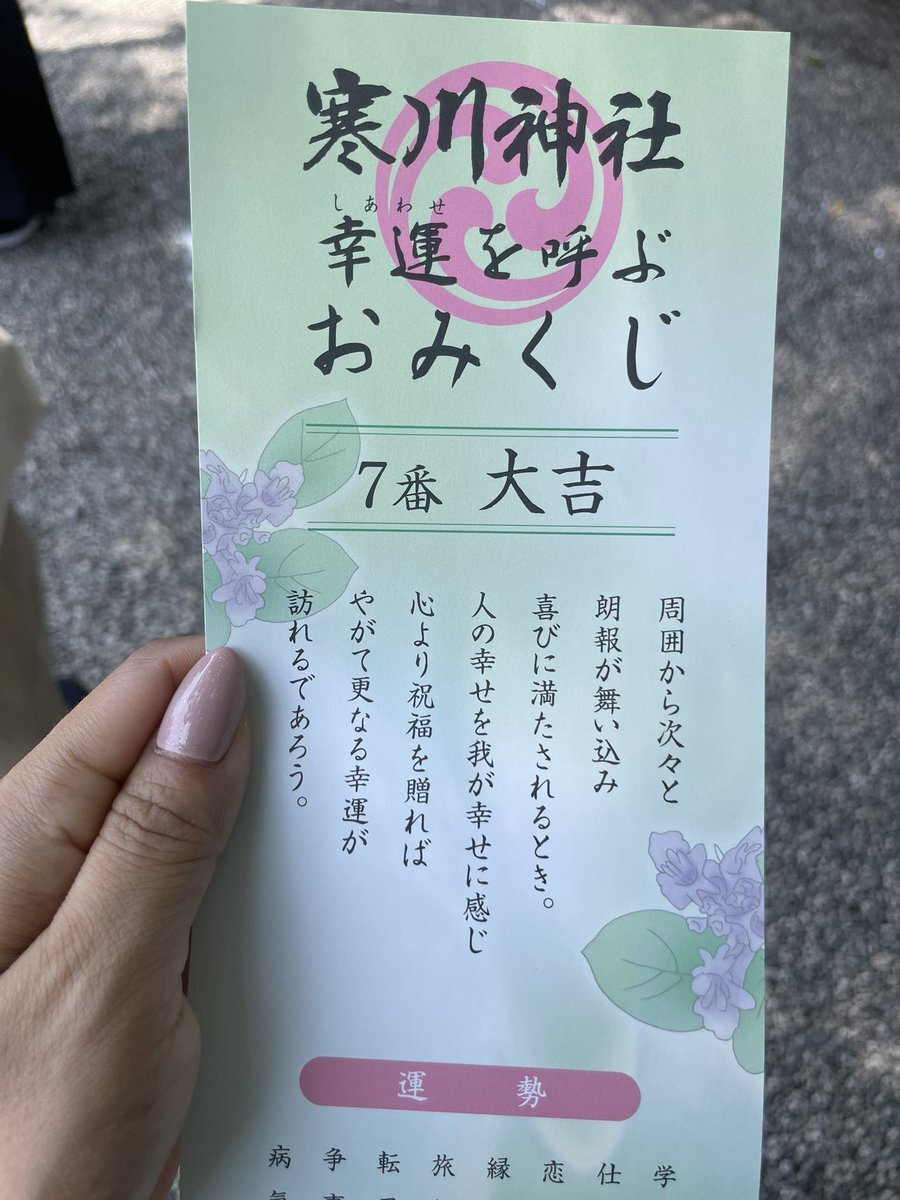 寒川神社
しあわせ
幸運を呼ぶ
おみくじ
7番 大吉
周囲から次々と
朗報が舞い込み
喜びに満たされるとき。
人の幸せを我が幸せに感じ
心より祝福を贈れば
やがて更なる幸運が
訪れるであろう。
運勢
学
仕
恋
縁
旅
転
争
病